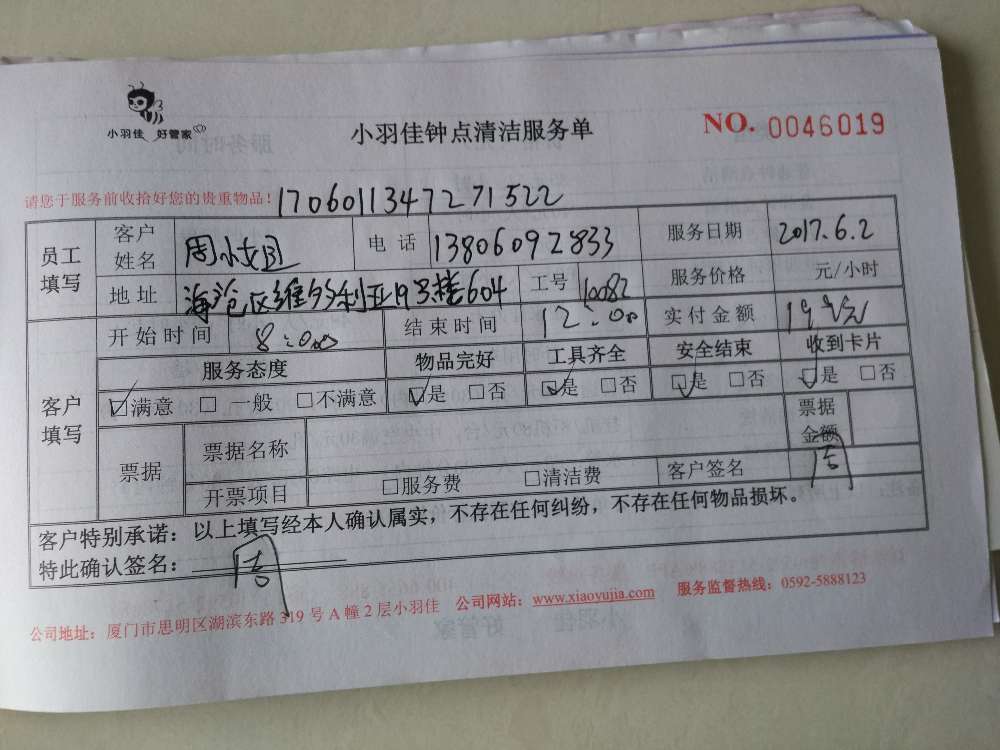 小羽佳 好管家
小羽佳钟点清洁服务单
NO. 0046019
请您于服务前收拾好您的贵重物品！1706011347271522
员工填写 客户姓名 周小姐 电话 13806092833 服务日期 2017.6.2
地址 海沧区维多利亚19号楼604 工号 10082 服务价格 元/小时
客户填写 开始时间 8:00 结束时间 12:00 实付金额
服务态度 物品完好 工具齐全 安全结束 收到卡片
☑满意 □一般 □不满意 ☑是 □否 ☑是 □否 ☑是 □否 ☑是 □否
票据 票据名称 票据金额
开票项目 □服务费 □清洁费 客户签名 周
客户特别承诺：以上填写经本人确认属实，不存在任何纠纷，不存在任何物品损坏。
特此确认签名： 周
公司地址：厦门市思明区湖滨东路319号A幢2层小羽佳 公司网站：www.xiaoyujia.com 服务监督热线：0592-5888123